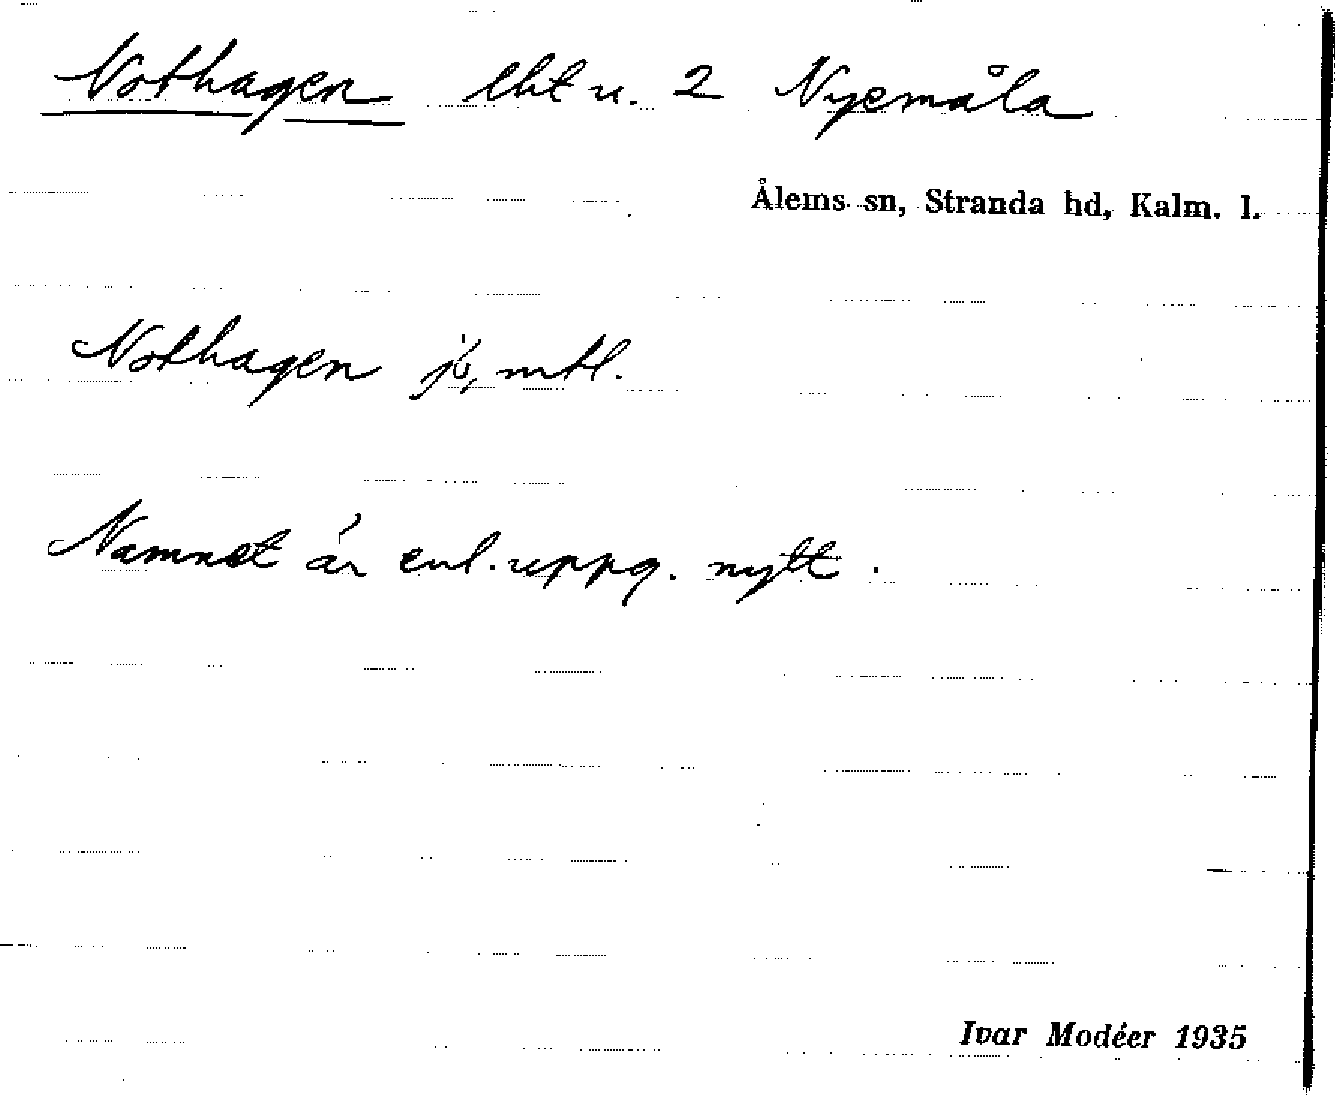 Nothagen lht u. 2 Nyemåla
Ålems sn, Stranda hd, Kalm. l.
Nothagen jb, mtl.
Namnet är enl. uppg. nytt.
Ivar Modéer 1935